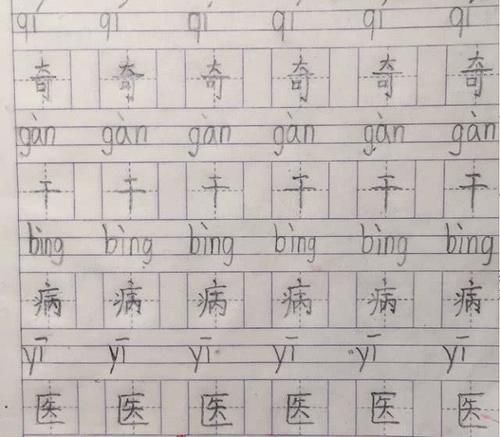 qí qí qí qí qí qí
奇 奇 奇 奇 奇 奇
gàn gàn gàn gàn gàn gàn
干 干 干 干 干 干
bìng bìng bìng bìng bìng bìng
病 病 病 病 病 病
yī yī yī yī yī yī
医 医 医 医 医 医